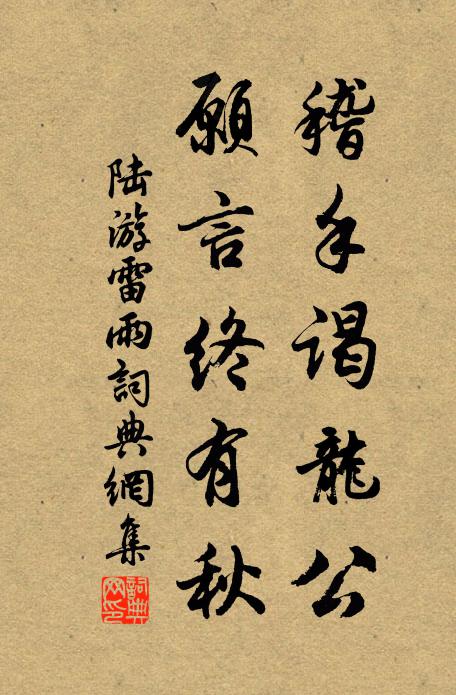 稽首謁龍公
願言終有秋
陆游雷雨詞典網集
詞典网印